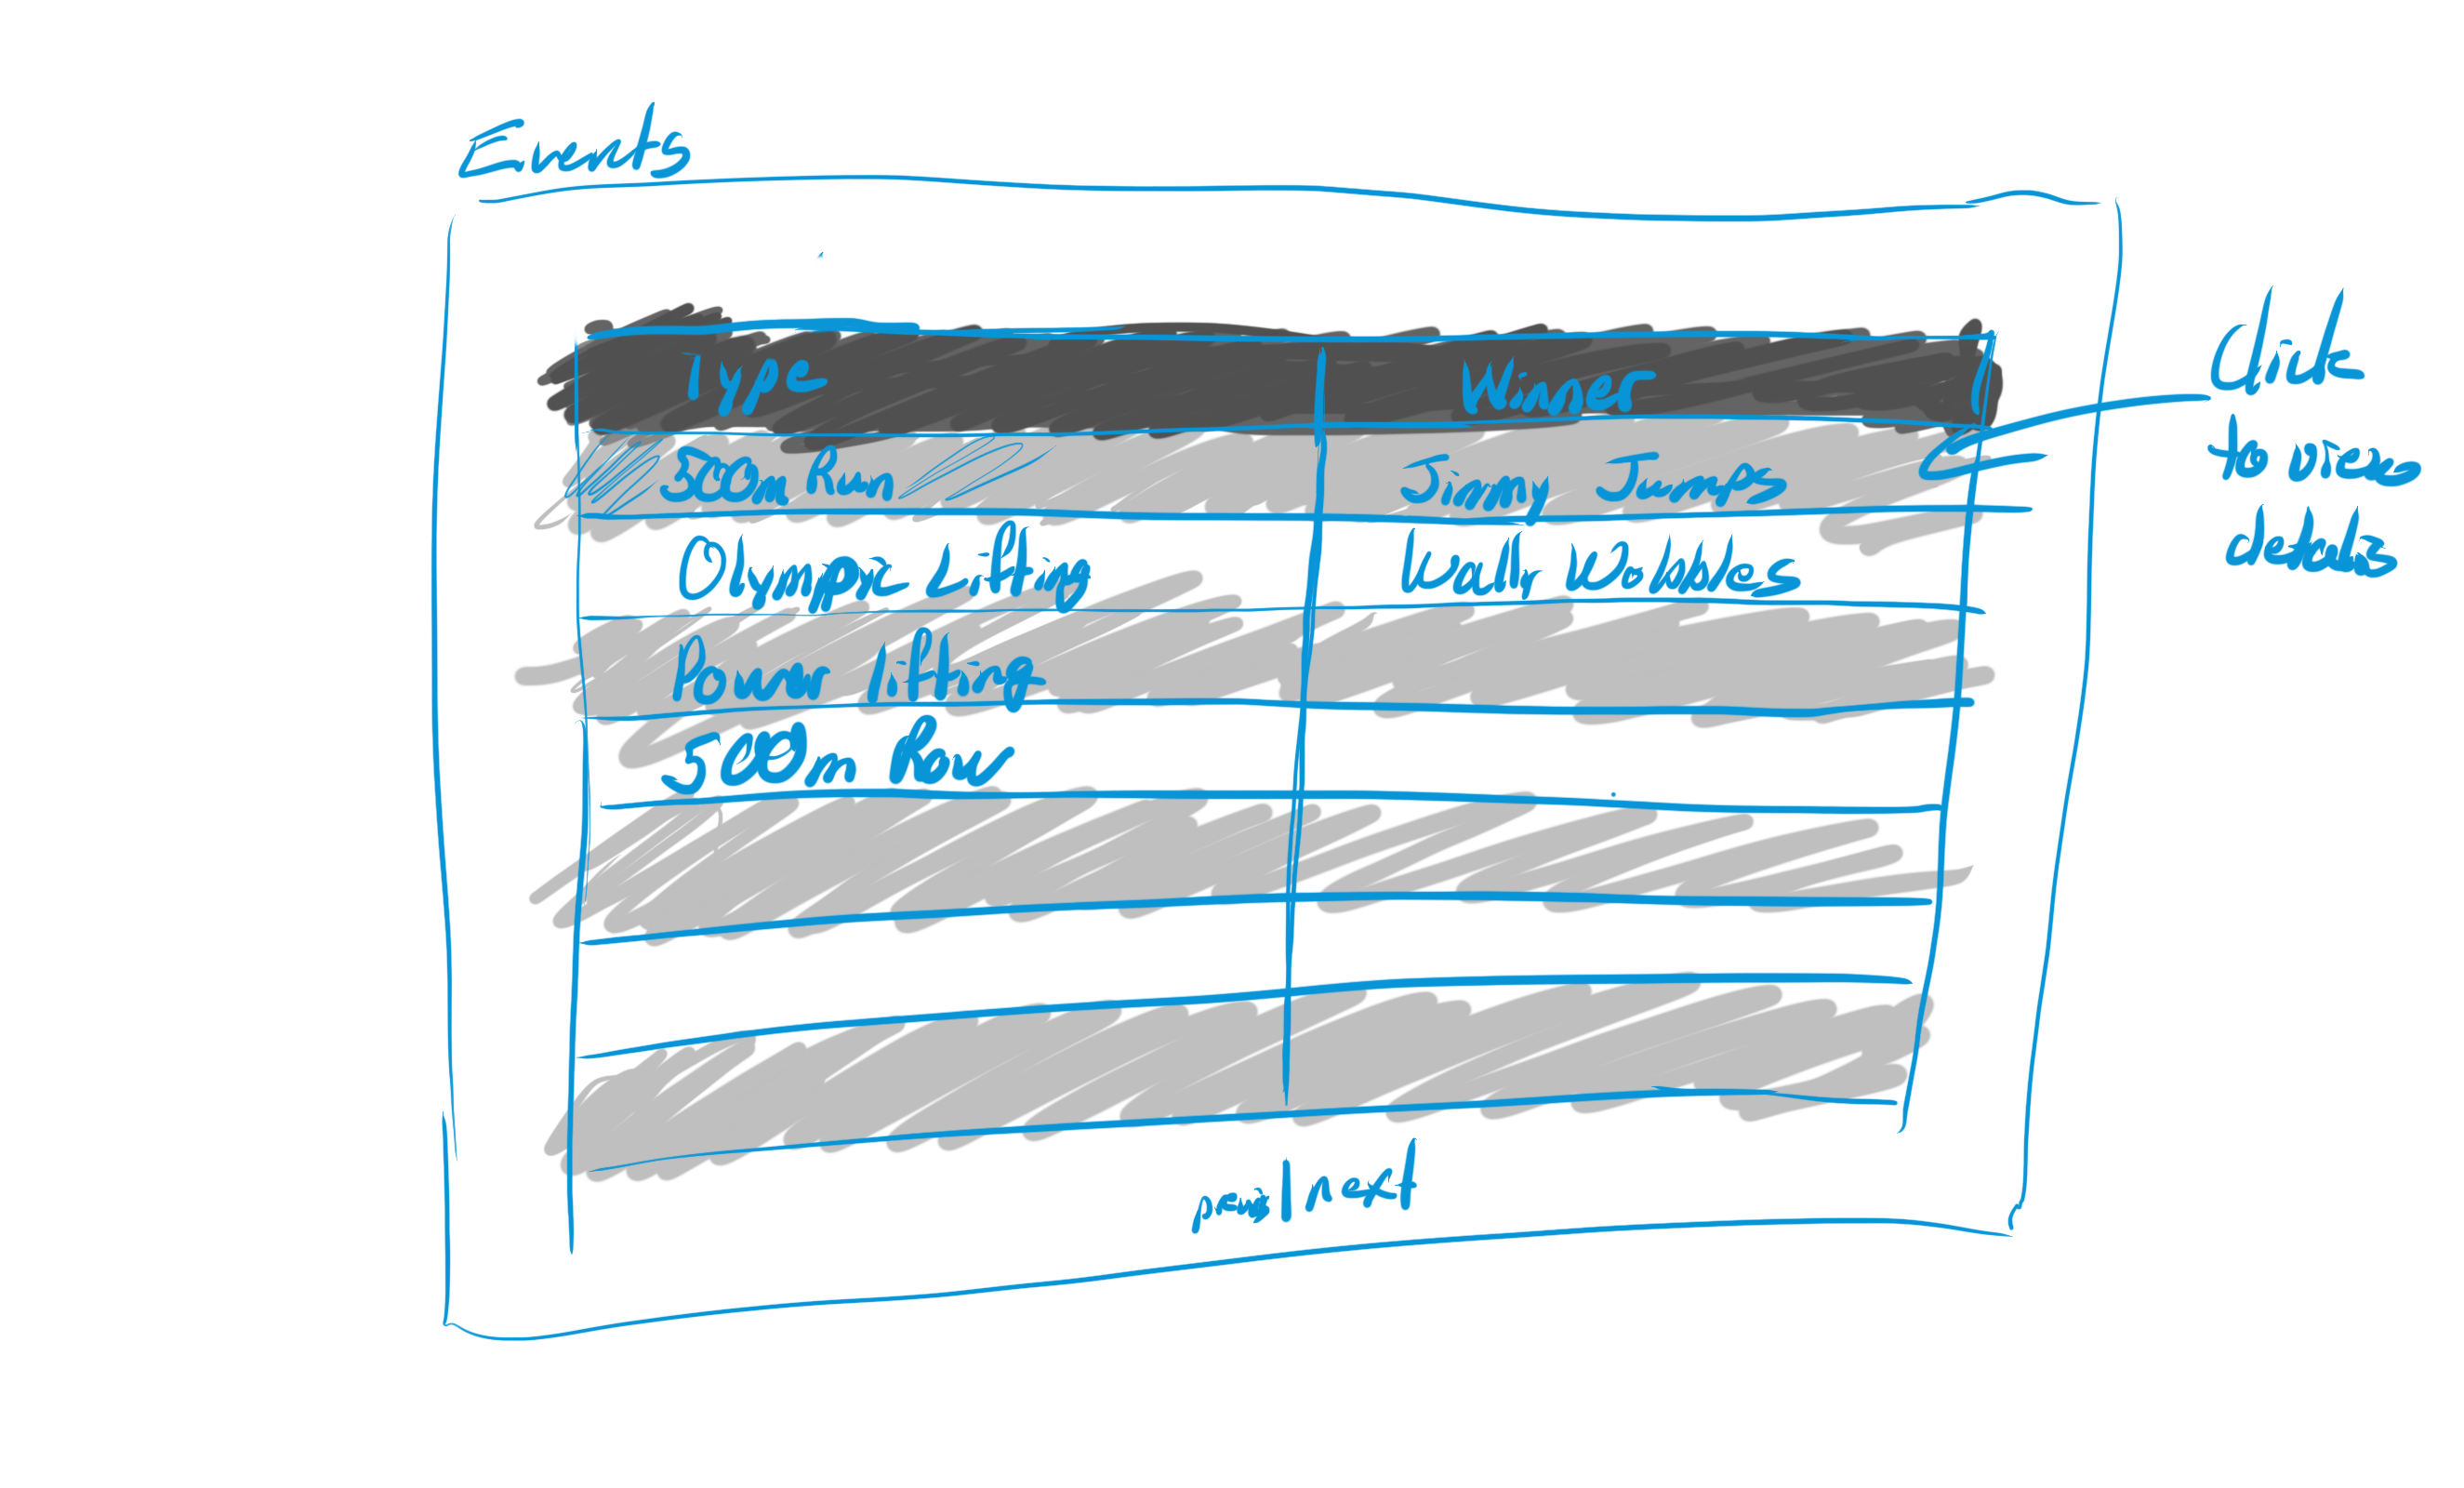 Events
Type Winner
500m Run Jimmy Jumps
Olympic Lifting Wally Wobbles
Power lifting
500m Row
| next
Click
to view
details